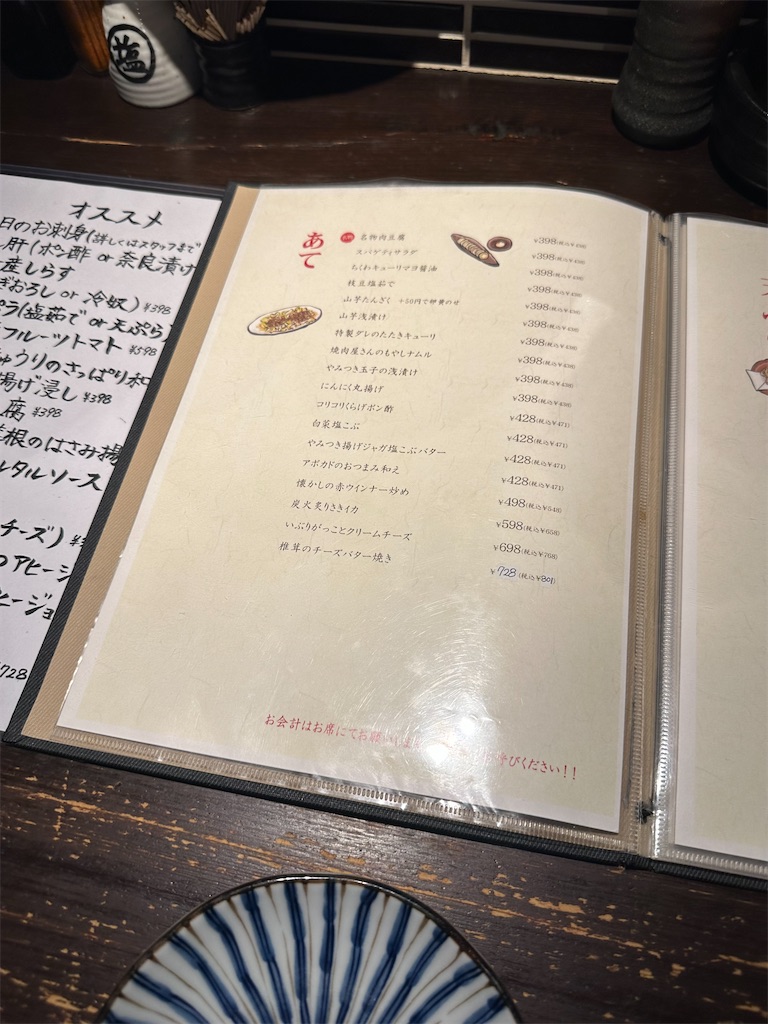 塩
オススメ
日のお刺身(詳しくはスタッフまで
肝(ポン酢 or 奈良漬け
産しらす
ぎおろし or 冷奴) ¥398
ラ(塩茹で or 天ぷら)
フルーツトマト ¥598
ゅうりのさっぱり和
揚げ浸し ¥398
腐 ¥398
根のはさみ揚
ルタルソース
チーズ)
のアヒージ
ヒージョ
728
あて
名物肉豆腐 ¥398(税込¥438)
スパゲティサラダ ¥398(税込¥438)
ちくわキューリマヨ醤油 ¥398(税込¥438)
枝豆塩茹で ¥398(税込¥438)
山芋たんざく +50円で卵黄のせ ¥398(税込¥438)
山芋浅漬け ¥398(税込¥438)
特製ダレのたたきキューリ ¥398(税込¥438)
焼肉屋さんのもやしナムル ¥398(税込¥438)
やみつき玉子の浅漬け ¥398(税込¥438)
にんにく丸揚げ ¥398(税込¥438)
コリコリくらげポン酢 ¥428(税込¥471)
白菜塩こぶ ¥428(税込¥471)
やみつき揚げジャガ塩こぶバター ¥428(税込¥471)
アボカドのおつまみ和え ¥428(税込¥471)
懐かしの赤ウインナー炒め ¥498(税込¥548)
炭火炙りさきイカ ¥598(税込¥658)
いぶりがっことクリームチーズ ¥698(税込¥768)
椎茸のチーズバター焼き ¥728(税込¥801)
お会計はお席にてお願いします びください！！